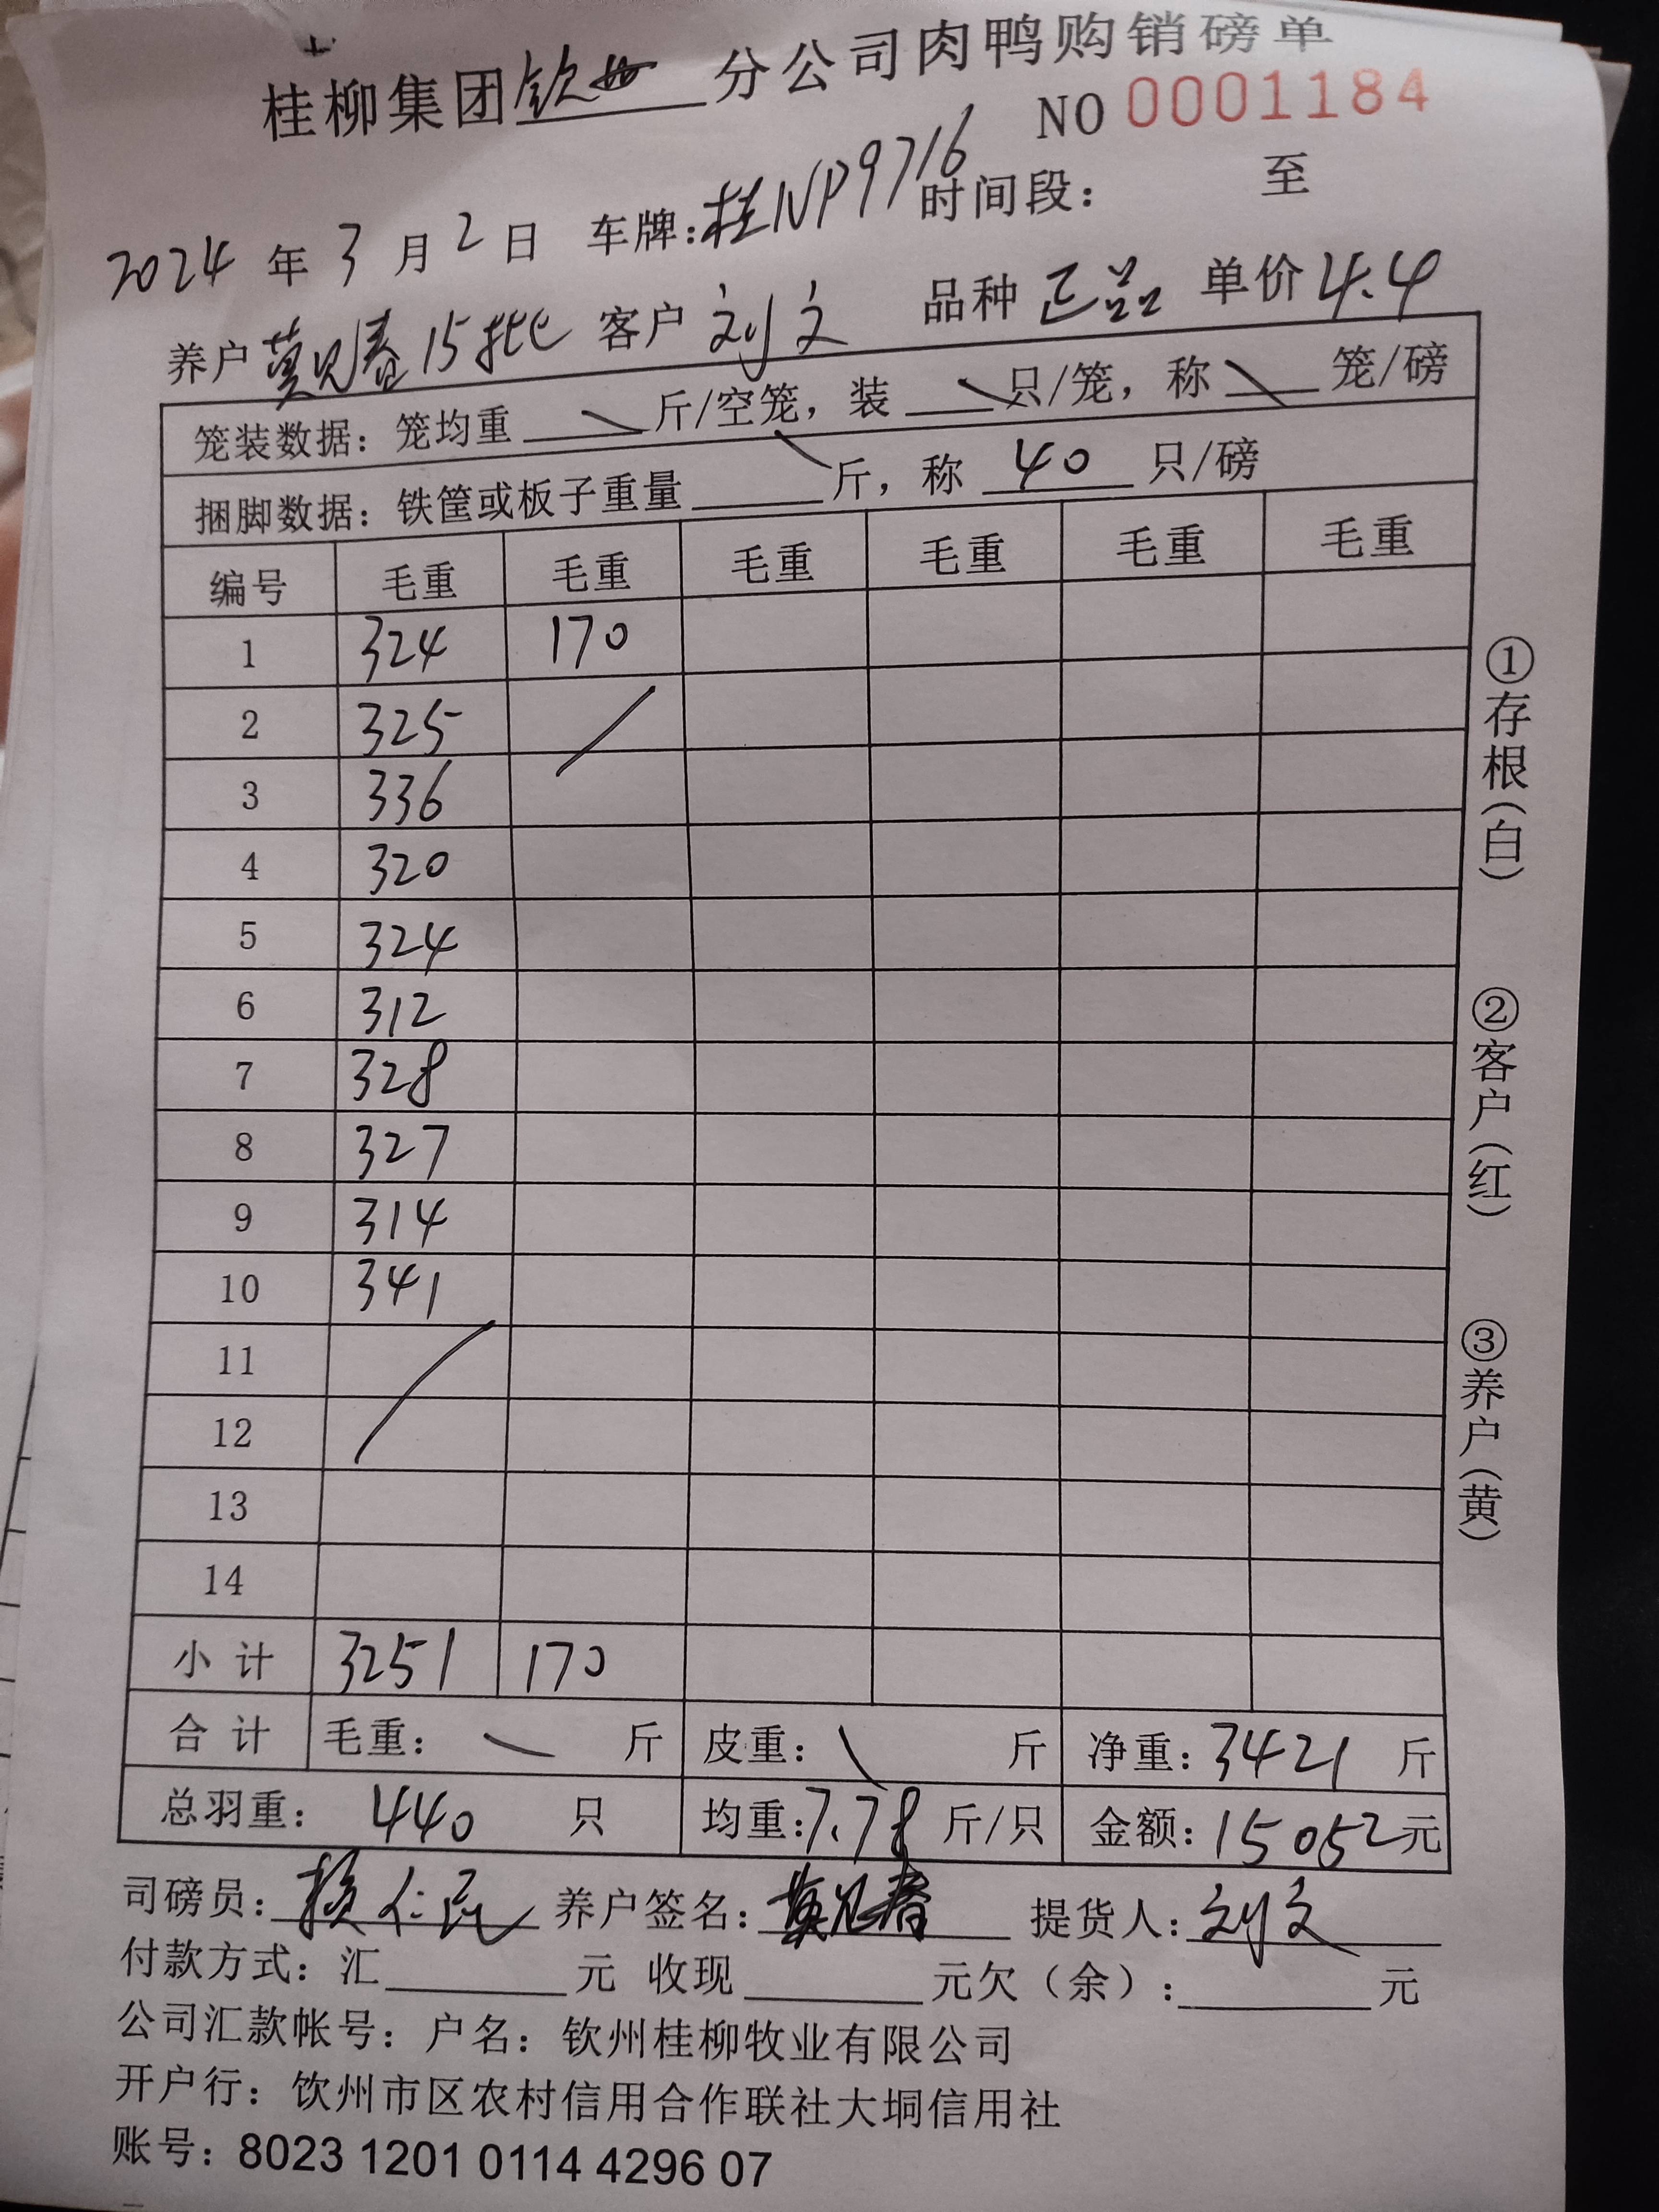 桂柳集团钦州分公司肉鸭购销磅单
NO 0001184
2024年3月2日 车牌:桂NP9716 时间段: 至
养户莫见春15批 客户 刘文 品种 正品 单价4.4
笼装数据: 笼均重 斤/空笼, 装 只/笼, 称 笼/磅
捆脚数据: 铁筐或板子重量 斤, 称 40 只/磅
编号 毛重 毛重 毛重 毛重 毛重 毛重
1 324 170
2 325
3 336
4 320
5 324
6 312
7 328
8 327
9 314
10 341
11
12
13
14
小计 3251 170
合计 毛重: 斤 皮重: 斤 净重: 3421 斤
总羽重: 440 只 均重: 7.78 斤/只 金额: 15052元
司磅员: 仁 养户签名: 莫见春 提货人: 刘文
付款方式: 汇 元 收现 元欠(余): 元
公司汇款帐号: 户名: 钦州桂柳牧业有限公司
开户行: 饮州市区农村信用合作联社大垌信用社
账号: 8023 1201 0114 4296 07
①存根(白)
②客户(红)
③养户(黄)